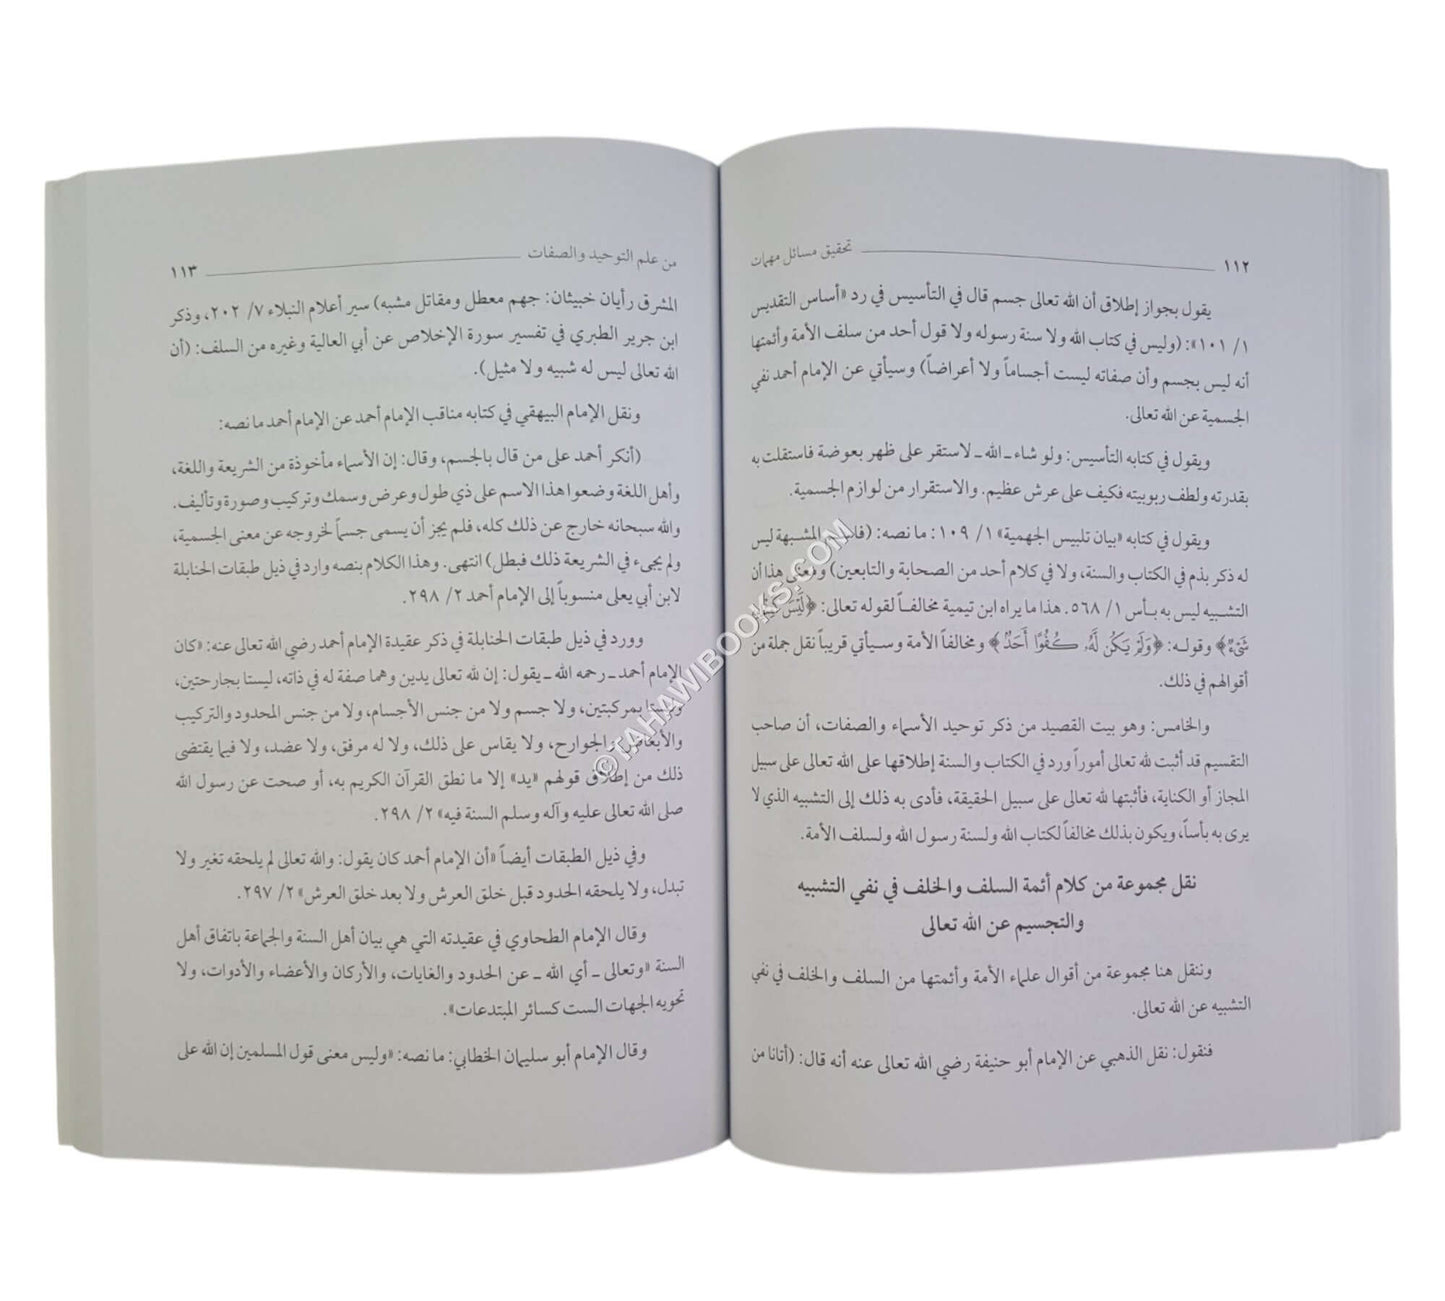 ١١٢ تحقيق مسائل مهمات
يقول بجواز إطلاق أن الله تعالى جسم قال في التأسيس في رد «أساس التقديس
١/ ١٠١»: (وليس في كتاب الله ولا سنة رسوله ولا قول أحد من سلف الأمة وأئمتها
أنه ليس بجسم وأن صفاته ليست أجساماً ولا أعراضاً) وسيأتي عن الإمام أحمد نفي
الجسمية عن الله تعالى.
ويقول في كتابه التأسيس: ولو شاء ـ الله ـ لاستقر على ظهر بعوضة فاستقلت به
بقدرته ولطف ربوبيته فكيف على عرش عظيم. والاستقرار من لوازم الجسمية.
ويقول في كتابه «بيان تلبيس الجهمية» ١/ ١٠٩: ما نصه: المشبهة ليس
له ذكر بذم في الكتاب والسنة، ولا في كلام أحد من الصحابة والتابعين) ومعنى هذا أن
التشبيه ليس به بأس ١/ ٥٦٨. هذا ما يراه ابن تيمية مخالفاً لقوله تعالى: ﴿لَيْسَ كَمِثْلِهِ
شَىْءٌ﴾ وقوله: ﴿وَلَمْ يَكُن لَّهُۥ كُفُوًا أَحَدٌۢ﴾ ومخالفاً الأمة وسيأتي قريباً نقل جملة من
أقوالهم في ذلك.
والخامس: وهو بيت القصيد من ذكر توحيد الأسماء والصفات، أن صاحب
التقسيم قد أثبت لله تعالى أموراً ورد في الكتاب والسنة إطلاقها على الله تعالى على سبيل
المجاز أو الكناية، فأثبتها لله تعالى على سبيل الحقيقة، فأدى به ذلك إلى التشبيه الذي لا
يرى به بأساً، ويكون بذلك مخالفاً لكتاب الله ولسنة رسول الله ولسلف الأمة.
نقل مجموعة من كلام أئمة السلف والخلف في نفي التشبيه
والتجسيم عن الله تعالى
وننقل هنا مجموعة من أقوال علماء الأمة وأئمتها من السلف والخلف في نفي
التشبيه عن الله تعالى.
فنقول: نقل الذهبي عن الإمام أبو حنيفة رضي الله تعالى عنه أنه قال: (أتانا من
من علم التوحيد والصفات ١١٣
المشرق رأيان خبيثان: جهم معطل ومقاتل مشبه) سير أعلام النبلاء ٧/ ٢٠٢، وذكر
ابن جرير الطبري في تفسير سورة الإخلاص عن أبي العالية وغيره من السلف: (أن
الله تعالى ليس له شبيه ولا مثيل).
ونقل الإمام البيهقي في كتابه مناقب الإمام أحمد عن الإمام أحمد ما نصه:
(أنكر أحمد على من قال بالجسم، وقال: إن الأسماء مأخوذة من الشريعة واللغة،
وأهل اللغة وضعوا هذا الاسم على ذي طول وعرض وسمك وتركيب وصورة وتأليف.
والله سبحانه خارج عن ذلك كله، فلم يجز أن يسمى جسماً لخروجه عن معنى الجسمية،
ولم يجىء في الشريعة ذلك فبطل) انتهى. وهذا الكلام بنصه وارد في ذيل طبقات الحنابلة
لابن أبي يعلى منسوباً إلى الإمام أحمد ٢/ ٢٩٨.
وورد في ذيل طبقات الحنابلة في ذكر عقيدة الإمام أحمد رضي الله تعالى عنه: «كان
الإمام أحمد ـ رحمه الله ـ يقول: إن لله تعالى يدين وهما صفة له في ذاته، ليستا بجارحتين،
وليستا بمركبتين، ولا جسم ولا من جنس الأجسام، ولا من جنس المحدود والتركيب
والأبعاض والجوارح، ولا يقاس على ذلك، ولا له مرفق، ولا عضد، ولا فيما يقتضى
ذلك من إطلاق قولهم «يد» إلا ما نطق القرآن الكريم به، أو صحت عن رسول الله
صلى الله تعالى عليه وآله وسلم السنة فيه» ٢/ ٢٩٨.
وفي ذيل الطبقات أيضاً «أن الإمام أحمد كان يقول: والله تعالى لم يلحقه تغير ولا
تبدل، ولا يلحقه الحدود قبل خلق العرش ولا بعد خلق العرش» ٢/ ٢٩٧.
وقال الإمام الطحاوي في عقيدته التي هي بيان أهل السنة والجماعة باتفاق أهل
السنة «وتعالى ـ أي الله ـ عن الحدود والغايات، والأركان والأعضاء والأدوات، ولا
تحويه الجهات الست كسائر المبتدعات».
وقال الإمام أبو سليمان الخطابي: ما نصه: «وليس معنى قول المسلمين إن الله على
©TAHAWIBOOKS.COM